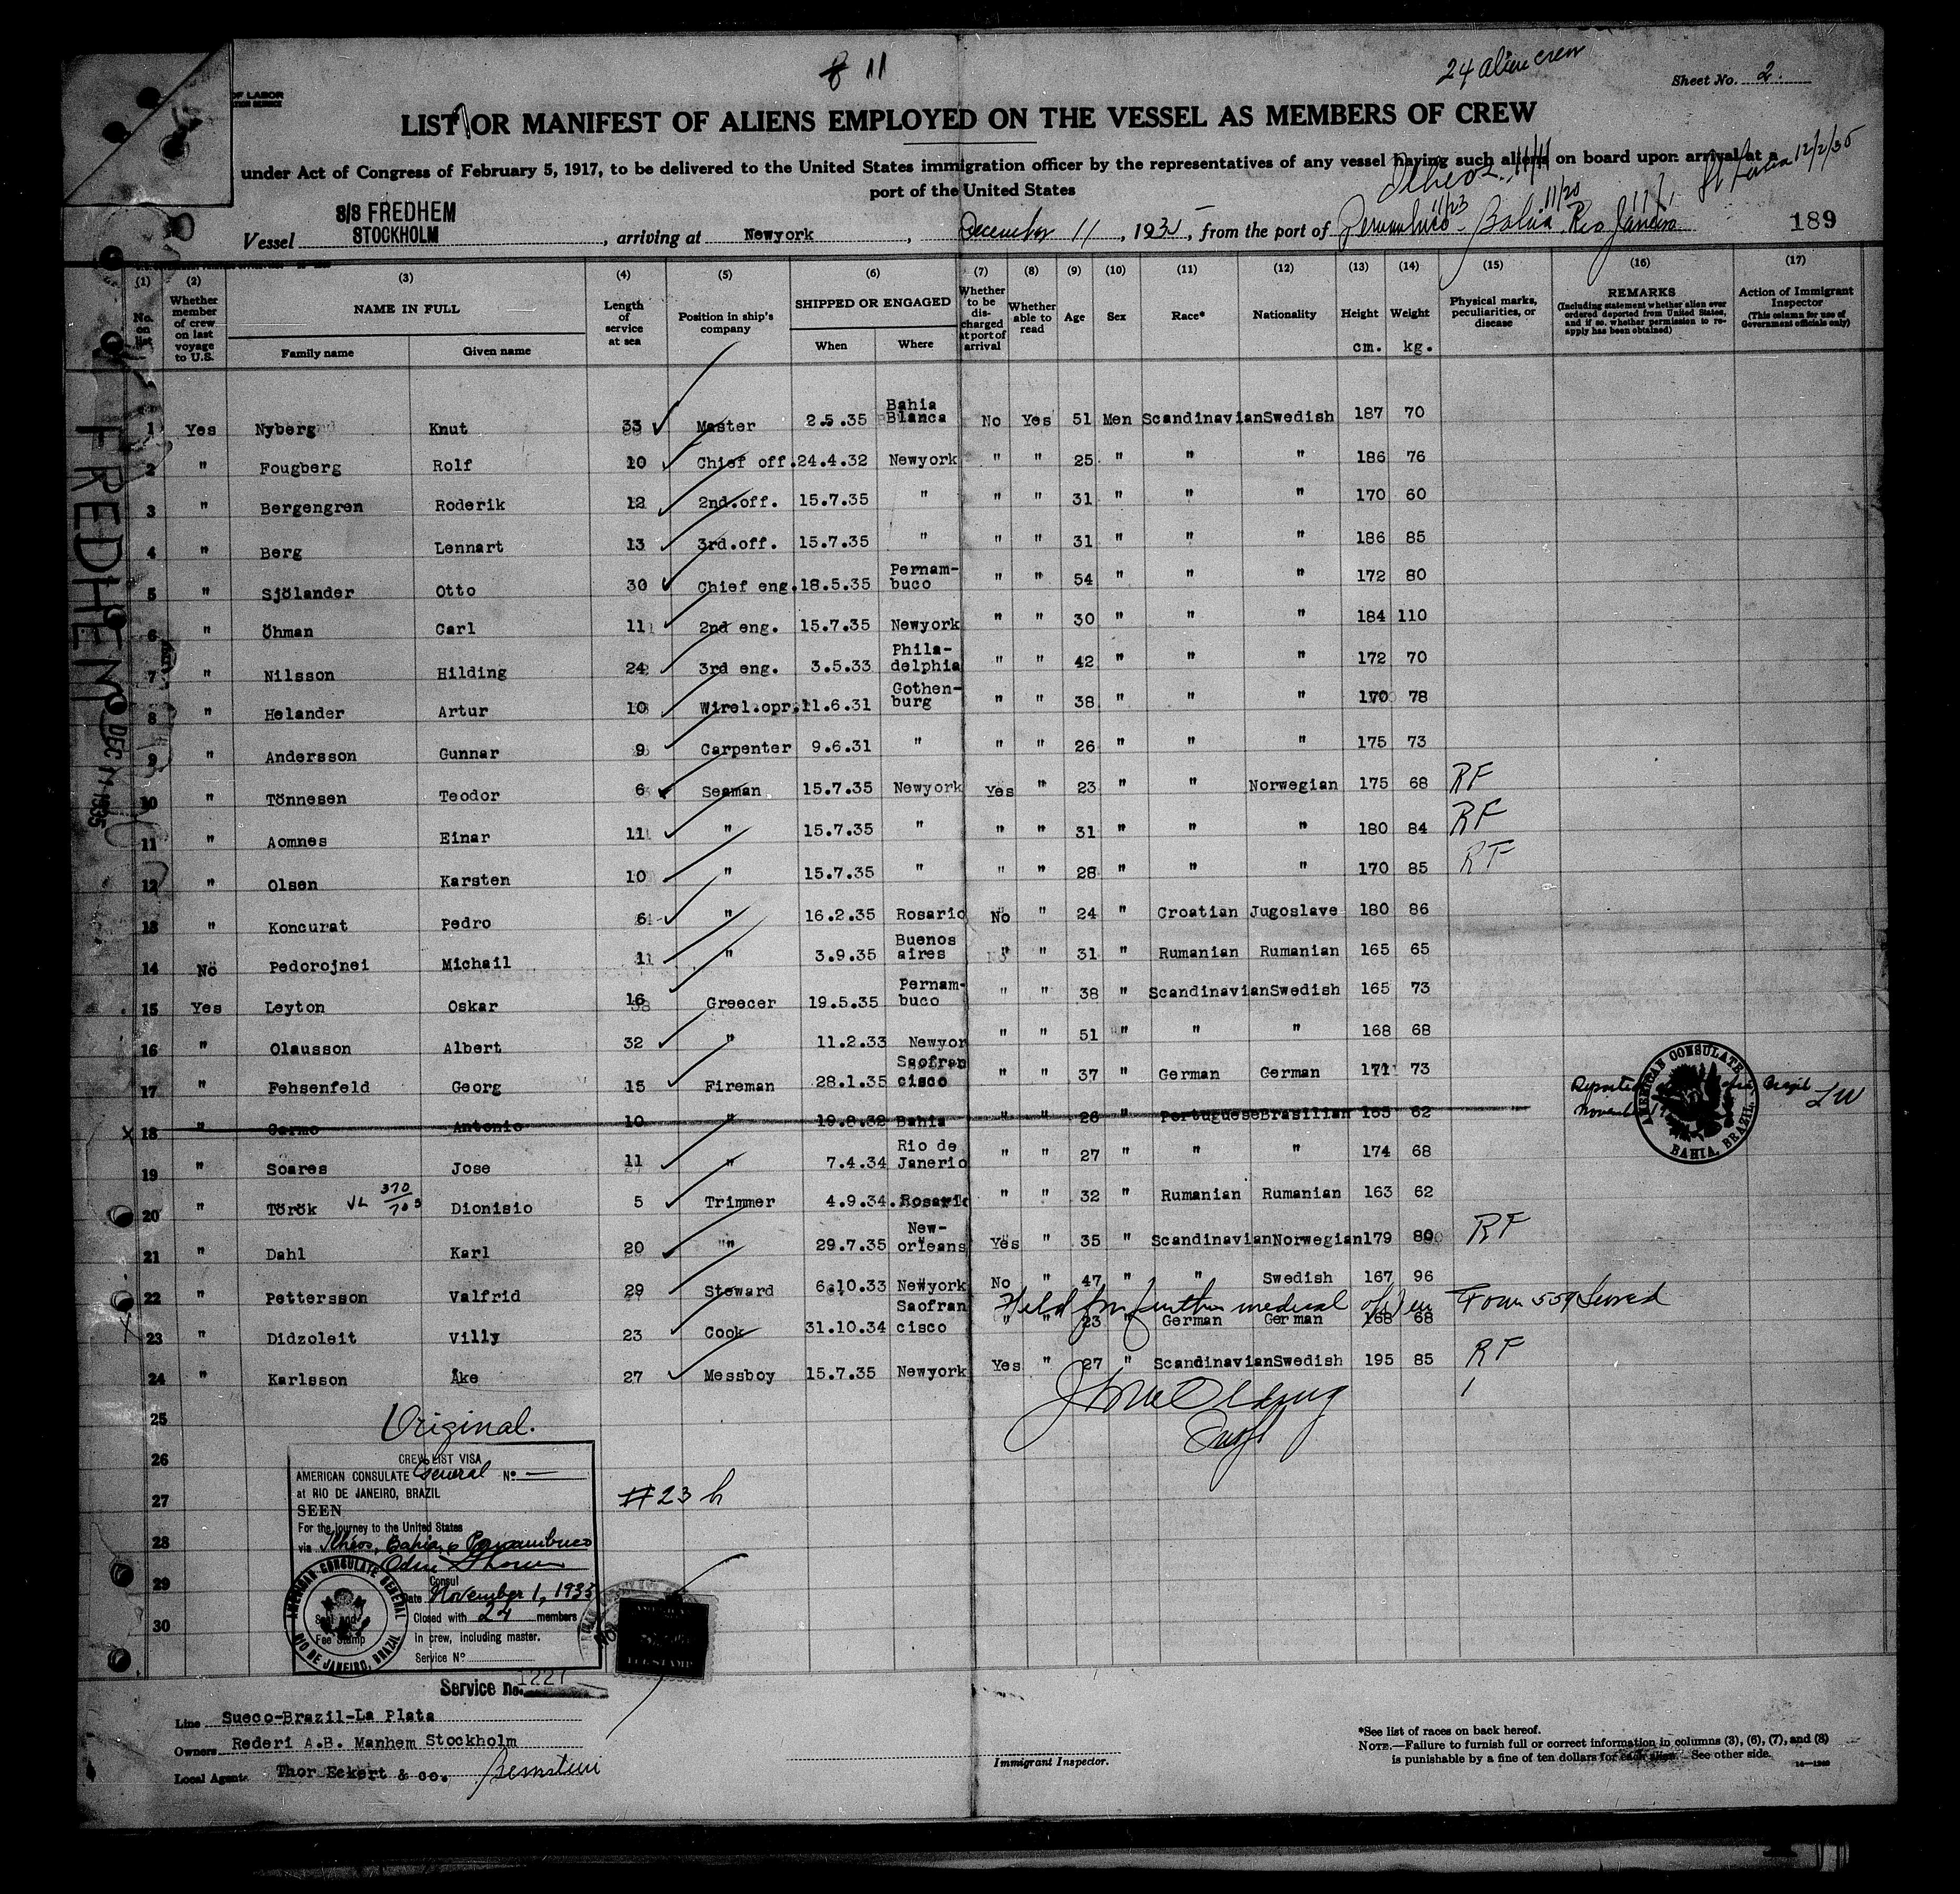 11
24 alien crew
Sheet No. 2.
OF LABOR
LIST OR MANIFEST OF ALIENS EMPLOYED ON THE VESSEL AS MEMBERS OF CREW
under Act of Congress of February 5, 1917, to be delivered to the United States immigration officer by the representatives of any vessel having such aliens on board upon arrival at a
port of the United States
St Lucia 12/2/35
Ilheos 11/11
11/23 11/20 11/1
S/S FREDHEM
STOCKHOLM
Vessel , arriving at Newyork , December 11 , 1935 , from the port of Pernambuco - Bahia. Rio Janeiro
189
(1) (2) (3) (4) (5) (6) (7) (8) (9) (10) (11) (12) (13) (14) (15) (16) (17)
No. on list
Whether member of crew on last voyage to U.S.
NAME IN FULL
Family name Given name
Length of service at sea
Position in ship's company
SHIPPED OR ENGAGED
When Where
Whether to be discharged at port of arrival
Whether able to read
Age
Sex
Race*
Nationality
Height cm.
Weight kg.
Physical marks, peculiarities, or disease
REMARKS
(Including statement whether alien ever ordered deported from United States, and if so, whether permission to reapply has been obtained)
Action of Immigrant Inspector
(This column for use of Government officials only)
1 Yes Nyberg Knut 33 Master 2.5.35 Bahia Blanca No Yes 51 Men Scandinavian Swedish 187 70
2 " Fougberg Rolf 10 Chief off. 24.4.32 Newyork " " 25 " " " 186 76
3 " Bergengren Roderik 12 2nd.off. 15.7.35 " " " 31 " " " 170 60
4 " Berg Lennart 13 3rd.off. 15.7.35 " " " 31 " " " 186 85
5 " Sjölander Otto 30 Chief eng. 18.5.35 Pernam-buco " " 54 " " " 172 80
6 " Öhman Carl 11 2nd eng. 15.7.35 Newyork " " 30 " " " 184 110
7 " Nilsson Hilding 24 3rd eng. 3.5.33 Phila-delphia " " 42 " " " 172 70
8 " Helander Artur 10 Wirel.opr. 11.6.31 Gothen-burg " " 38 " " " 170 78
9 " Andersson Gunnar 9 Carpenter 9.6.31 " " " 26 " " " 175 73
10 " Tönnesen Teodor 6 Seaman 15.7.35 Newyork Yes " 23 " " Norwegian 175 68 RF
11 " Aomnes Einar 11 " 15.7.35 " " " 31 " " " 180 84 RF
12 " Olsen Karsten 10 " 15.7.35 " " " 28 " " " 170 85 RF
13 " Koncurat Pedro 6 " 16.2.35 Rosario No " 24 " Croatian Jugoslave 180 86
14 No Pedorojnei Michail 11 " 3.9.35 Buenos aires " " 31 " Rumanian Rumanian 165 65
15 Yes Leyton Oskar 16 Greecer 19.5.35 Pernam-buco " " 38 " Scandinavian Swedish 165 73
16 " Olausson Albert 32 " 11.2.33 Newyor " " 51 " " " 168 68
17 " Fehsenfeld Georg 15 Fireman 28.1.35 Saofran cisco " " 37 " German German 171 73
x 18 " Carmo Antonio 10 " 19.8.32 Bahia " " 26 " Portuguese Brasilian 165 62
AMERICAN CONSULATE BAHIA, BRAZIL
19 " Soares Jose 11 " 7.4.34 Rio de Janerio " " 27 " " " 174 68
20 " Török VL 370/ Dionisio 5 Trimmer 4.9.34. Rosario " " 32 " Rumanian Rumanian 163 62
21 " Dahl Karl 20 "" 29.7.35 New-orleans Yes " 35 " Scandinavian Norwegian 179 80 RF
22 " Pettersson Valfrid 29 Steward 6.10.33 Newyork No " 47 " " Swedish 167 96
Held for further medical Form 559 served
23 " Didzoleit Villy 23 Cook 31.10.34 Saofran cisco " " 23 " German German 168 68
24 " Karlsson Åke 27 Messboy 15.7.35 Newyork Yes " 27 " Scandinavian Swedish 195 85 RF
25
26
27
28
29
30
Original.
CREW LIST VISA
AMERICAN CONSULATE General No —
at RIO DE JANEIRO, BRAZIL
SEEN
For the journey to the United States
via Ilhéos, Bahia, & Pernambuco
Consul
Date November 1, 1935
Closed with 24 members
in crew, including master.
Service No
Seal and Fee Stamp
AMERICAN CONSULATE GENERAL RIO DE JANEIRO, BRAZIL
#23 h
Service no. 1227
FREDHEM
DEC 11 1935
Line Sueco-Brazil-La Plata
Owners Rederi A.B. Manhem Stockholm
Local Agents Thor Eckert & co. Bernstein
Immigrant Inspector.
*See list of races on back hereof.
NOTE.—Failure to furnish full or correct information in columns (3), (6), (7), and (8)
is punishable by a fine of ten dollars for each alien. See other side.